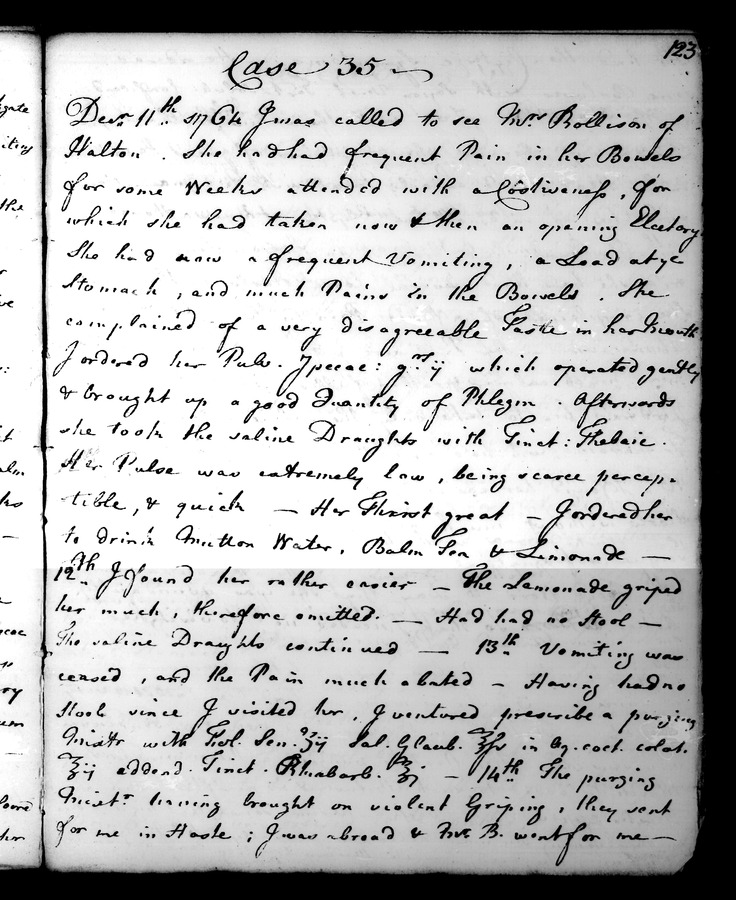 123
Case 35
Decr. 11th. 1764 I was called to see Mrs Rollison of
Halton. She had had frequent Pain in her Bowels
for some Weeks attended with a Costiveness, for
which she had taken now & then an opening Elcetary.
She had now a frequent Vomiting, a Load at ye
Stomach, and much Pains in the Bowels. She
complained of a very disagreeable Taste in her Mouth.
I ordered her Pulv. Ipecac: grs ij which operated gently
& brought up a good Quantity of Phlegm. Afterwards
she took the saline Draughts with Tinct: Thebaic.
Her Pulse was extremely low, being scarce percep-
tible, & quick — Her Thirst great — I ordered her
to drink Mutton Water, Balm Tea & Limonade —
12th. I found her rather easier — The Lemonade griped
her much, therefore omitted. — Had had no Stool —
The saline Draughts continued — 13th. Vomiting was
ceased, and the Pain much abated — Having had no
Stool since I visited her, I ventured prescribe a purging
Mistr with Fol. Sen. ʒij Sal. Glaub. ℥ſs in aq. coct. colat.
℥ij addend. Tinct. Rhabarb. ℥j — 14th The purging
Mistr. having brought on violent Griping, they sent
for me in Haste; I was abroad & Mr. B. went for me —